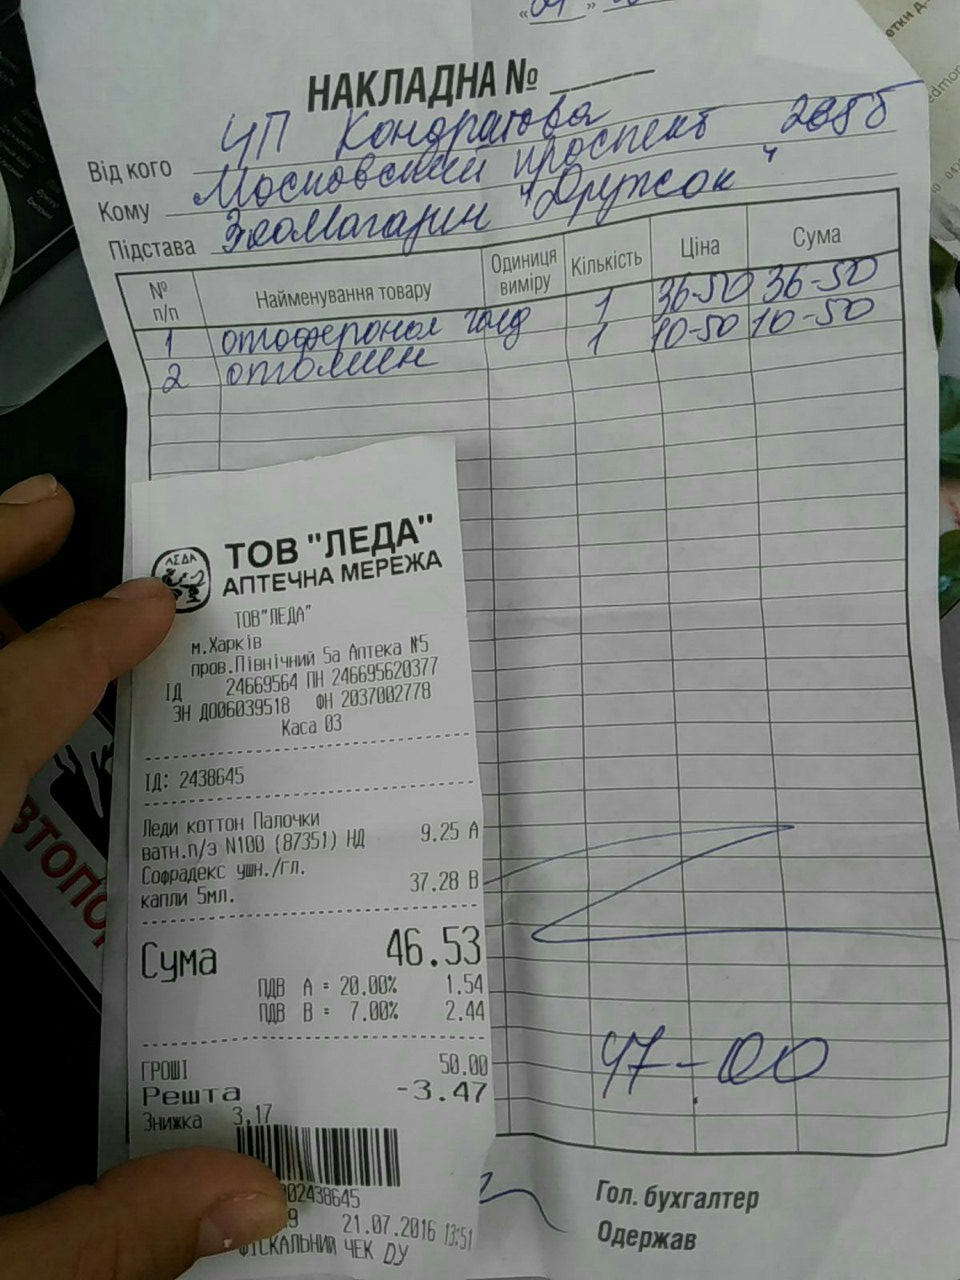 НАКЛАДНА №
Від кого ЧП Кондратова
Кому Московский проспект 268б
Підстава Зоомагазин "Дружок"
№ п/п Найменування товару Одиниця виміру Кількість Ціна Сума
1 отоферонол голд 1 36-50 36-50
2 отолмен 1 10-50 10-50
47-00
Гол. бухгалтер
Одержав
ЛЕДА
ТОВ "ЛЕДА"
АПТЕЧНА МЕРЕЖА
ТОВ"ЛЕДА"
м.Харків
пров.Північний 5а Аптека №5
ІД 24669564 ПН 246695620377
ЗН ДО06039518 ФН 2037002778
Каса 03
ІД: 2438645
Леди коттон Палочки
ватн.п/э N100 (87351) НД 9.25 А
Софрадекс ушн./гл.
капли 5мл. 37.28 В
Сума 46.53
ПДВ А = 20.00% 1.54
ПДВ В = 7.00% 2.44
ГРОШІ 50.00
Решта -3.47
Знижка 3,17
02438645
21.07.2016 13:51
ФІСКАЛЬНИЙ ЧЕК
ВТОПО